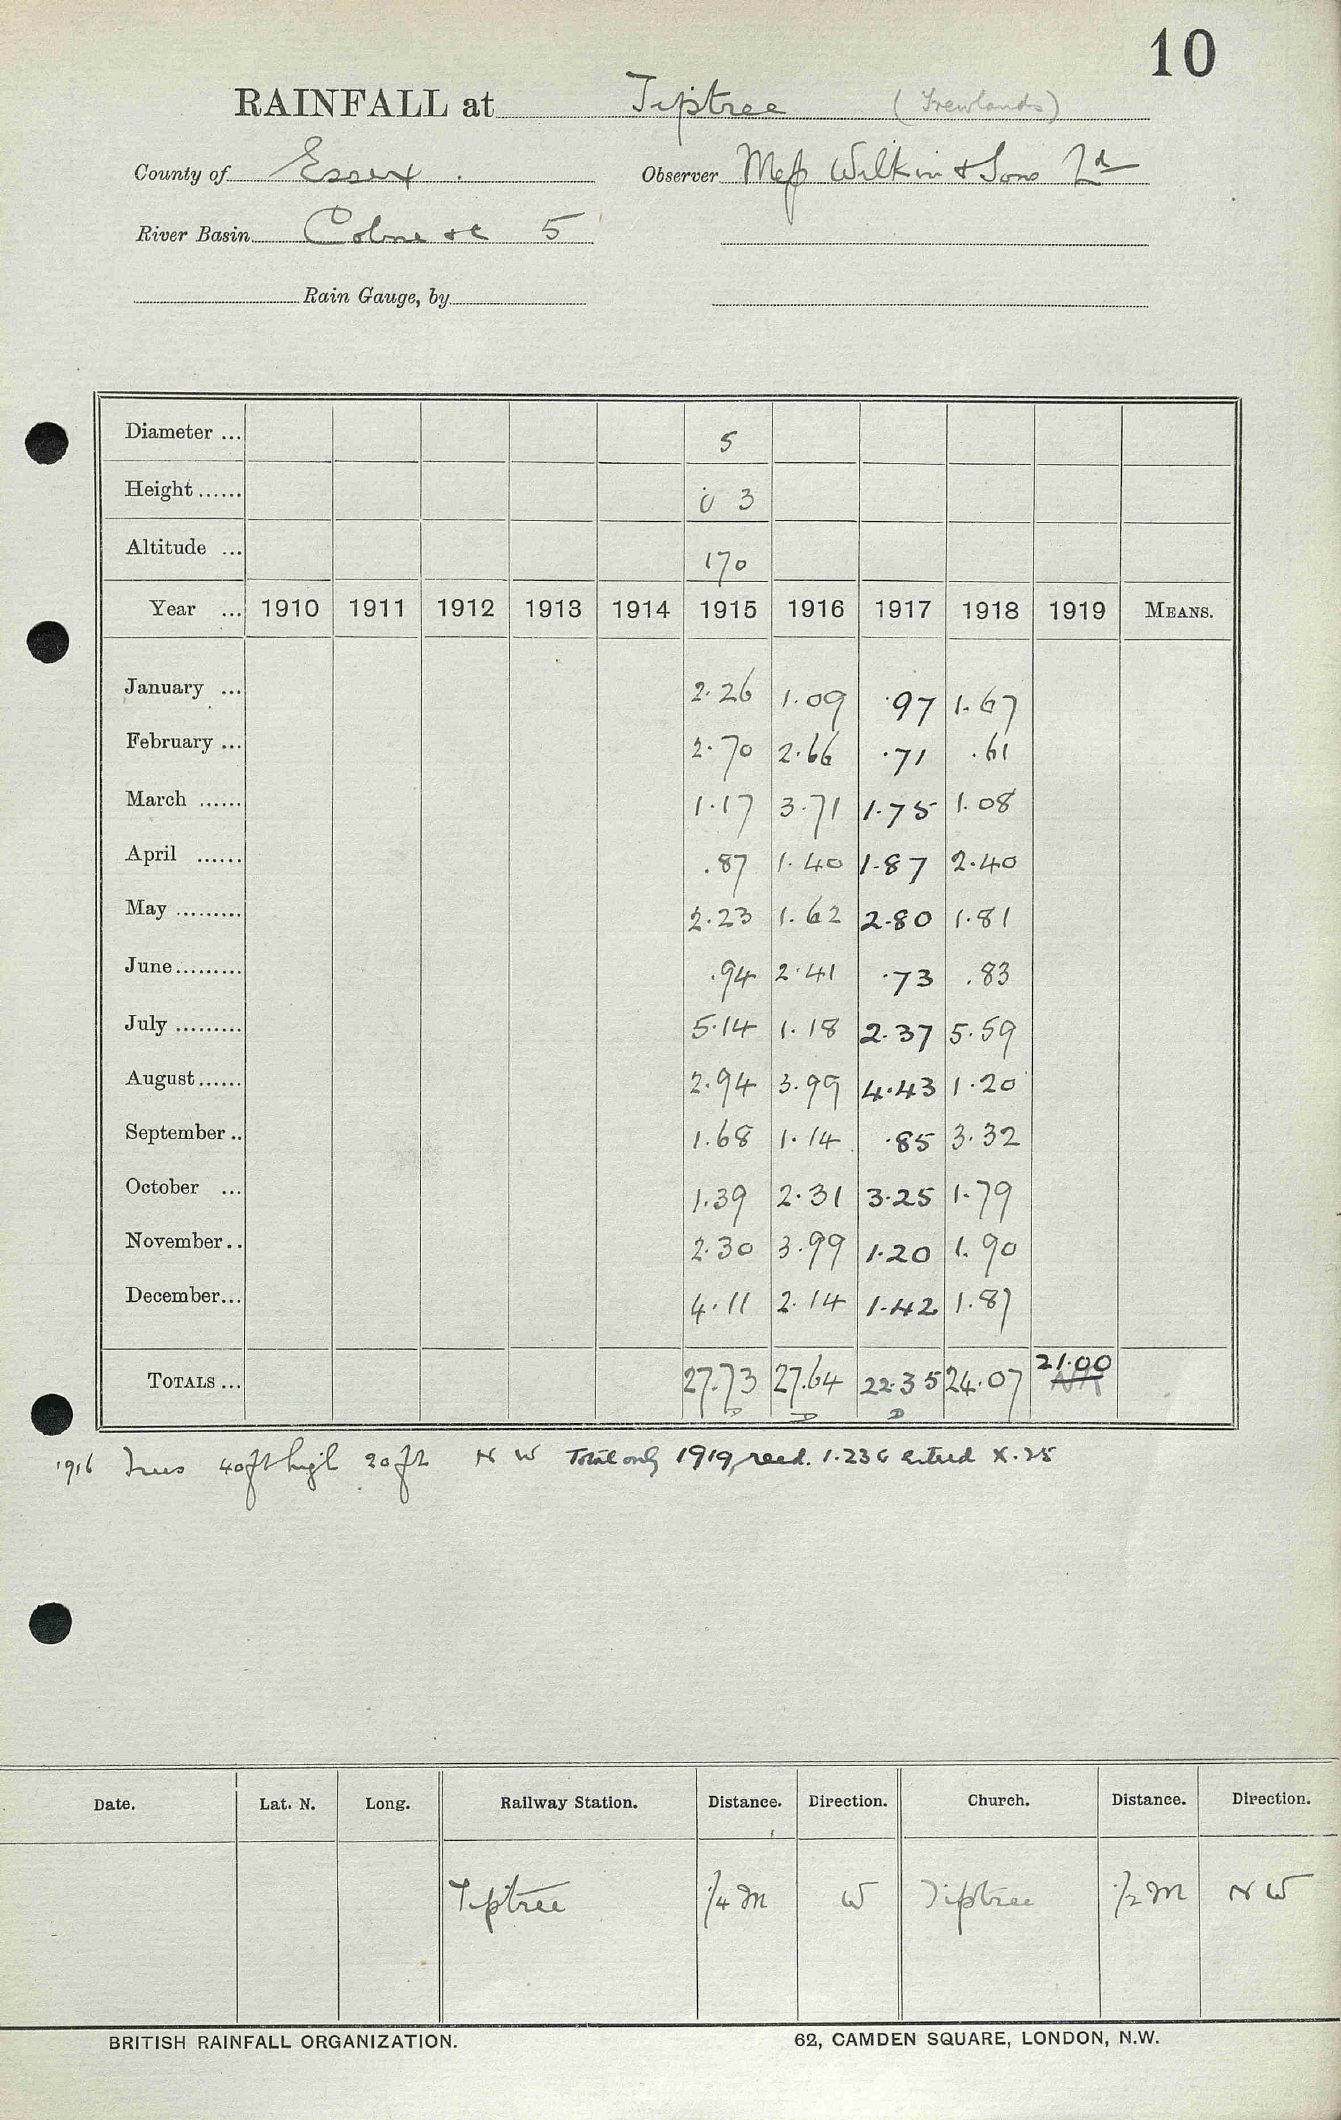 10
RAINFALL at Tiptree (Trewlands)
County of Essex. Observer Mess Wilkin & Sons Ld
River Basin Colne &c 5
Rain Gauge, by
Diameter ... 5
Height ...... 0 3
Altitude ... 170
Year ... 1910 1911 1912 1913 1914 1915 1916 1917 1918 1919 MEANS.
January ... 2.26 1.09 .97 1.67
February ... 2.70 2.66 .71 .61
March ...... 1.17 3.71 1.75 1.08
April ...... .87 1.40 1.87 2.40
May ......... 2.23 1.62 2.80 1.81
June ......... .94 2.41 .73 .83
July ......... 5.14 1.18 2.37 5.59
August ...... 2.94 3.99 4.43 1.20
September .. 1.68 1.14 .85 3.32
October ... 1.39 2.31 3.25 1.79
November .. 2.30 3.99 1.20 1.90
December ... 4.11 2.14 1.42 1.87
TOTALS ... 27.73 27.64 22.35 24.07 21.00 NR
D D D
1916 Trees 40ft high 20ft N W Total only 1919, recd. 1.236 entered X.25
Date. Lat. N. Long. Railway Station. Distance. Direction. Church. Distance. Direction.
Tiptree 1/4 M W Tiptree 1/2 M N W
BRITISH RAINFALL ORGANIZATION. 62, CAMDEN SQUARE, LONDON, N.W.